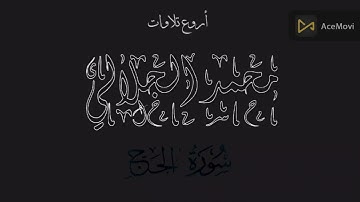 أروع تلاوات
AceMovi
محمد الجلالي
سورة الحج